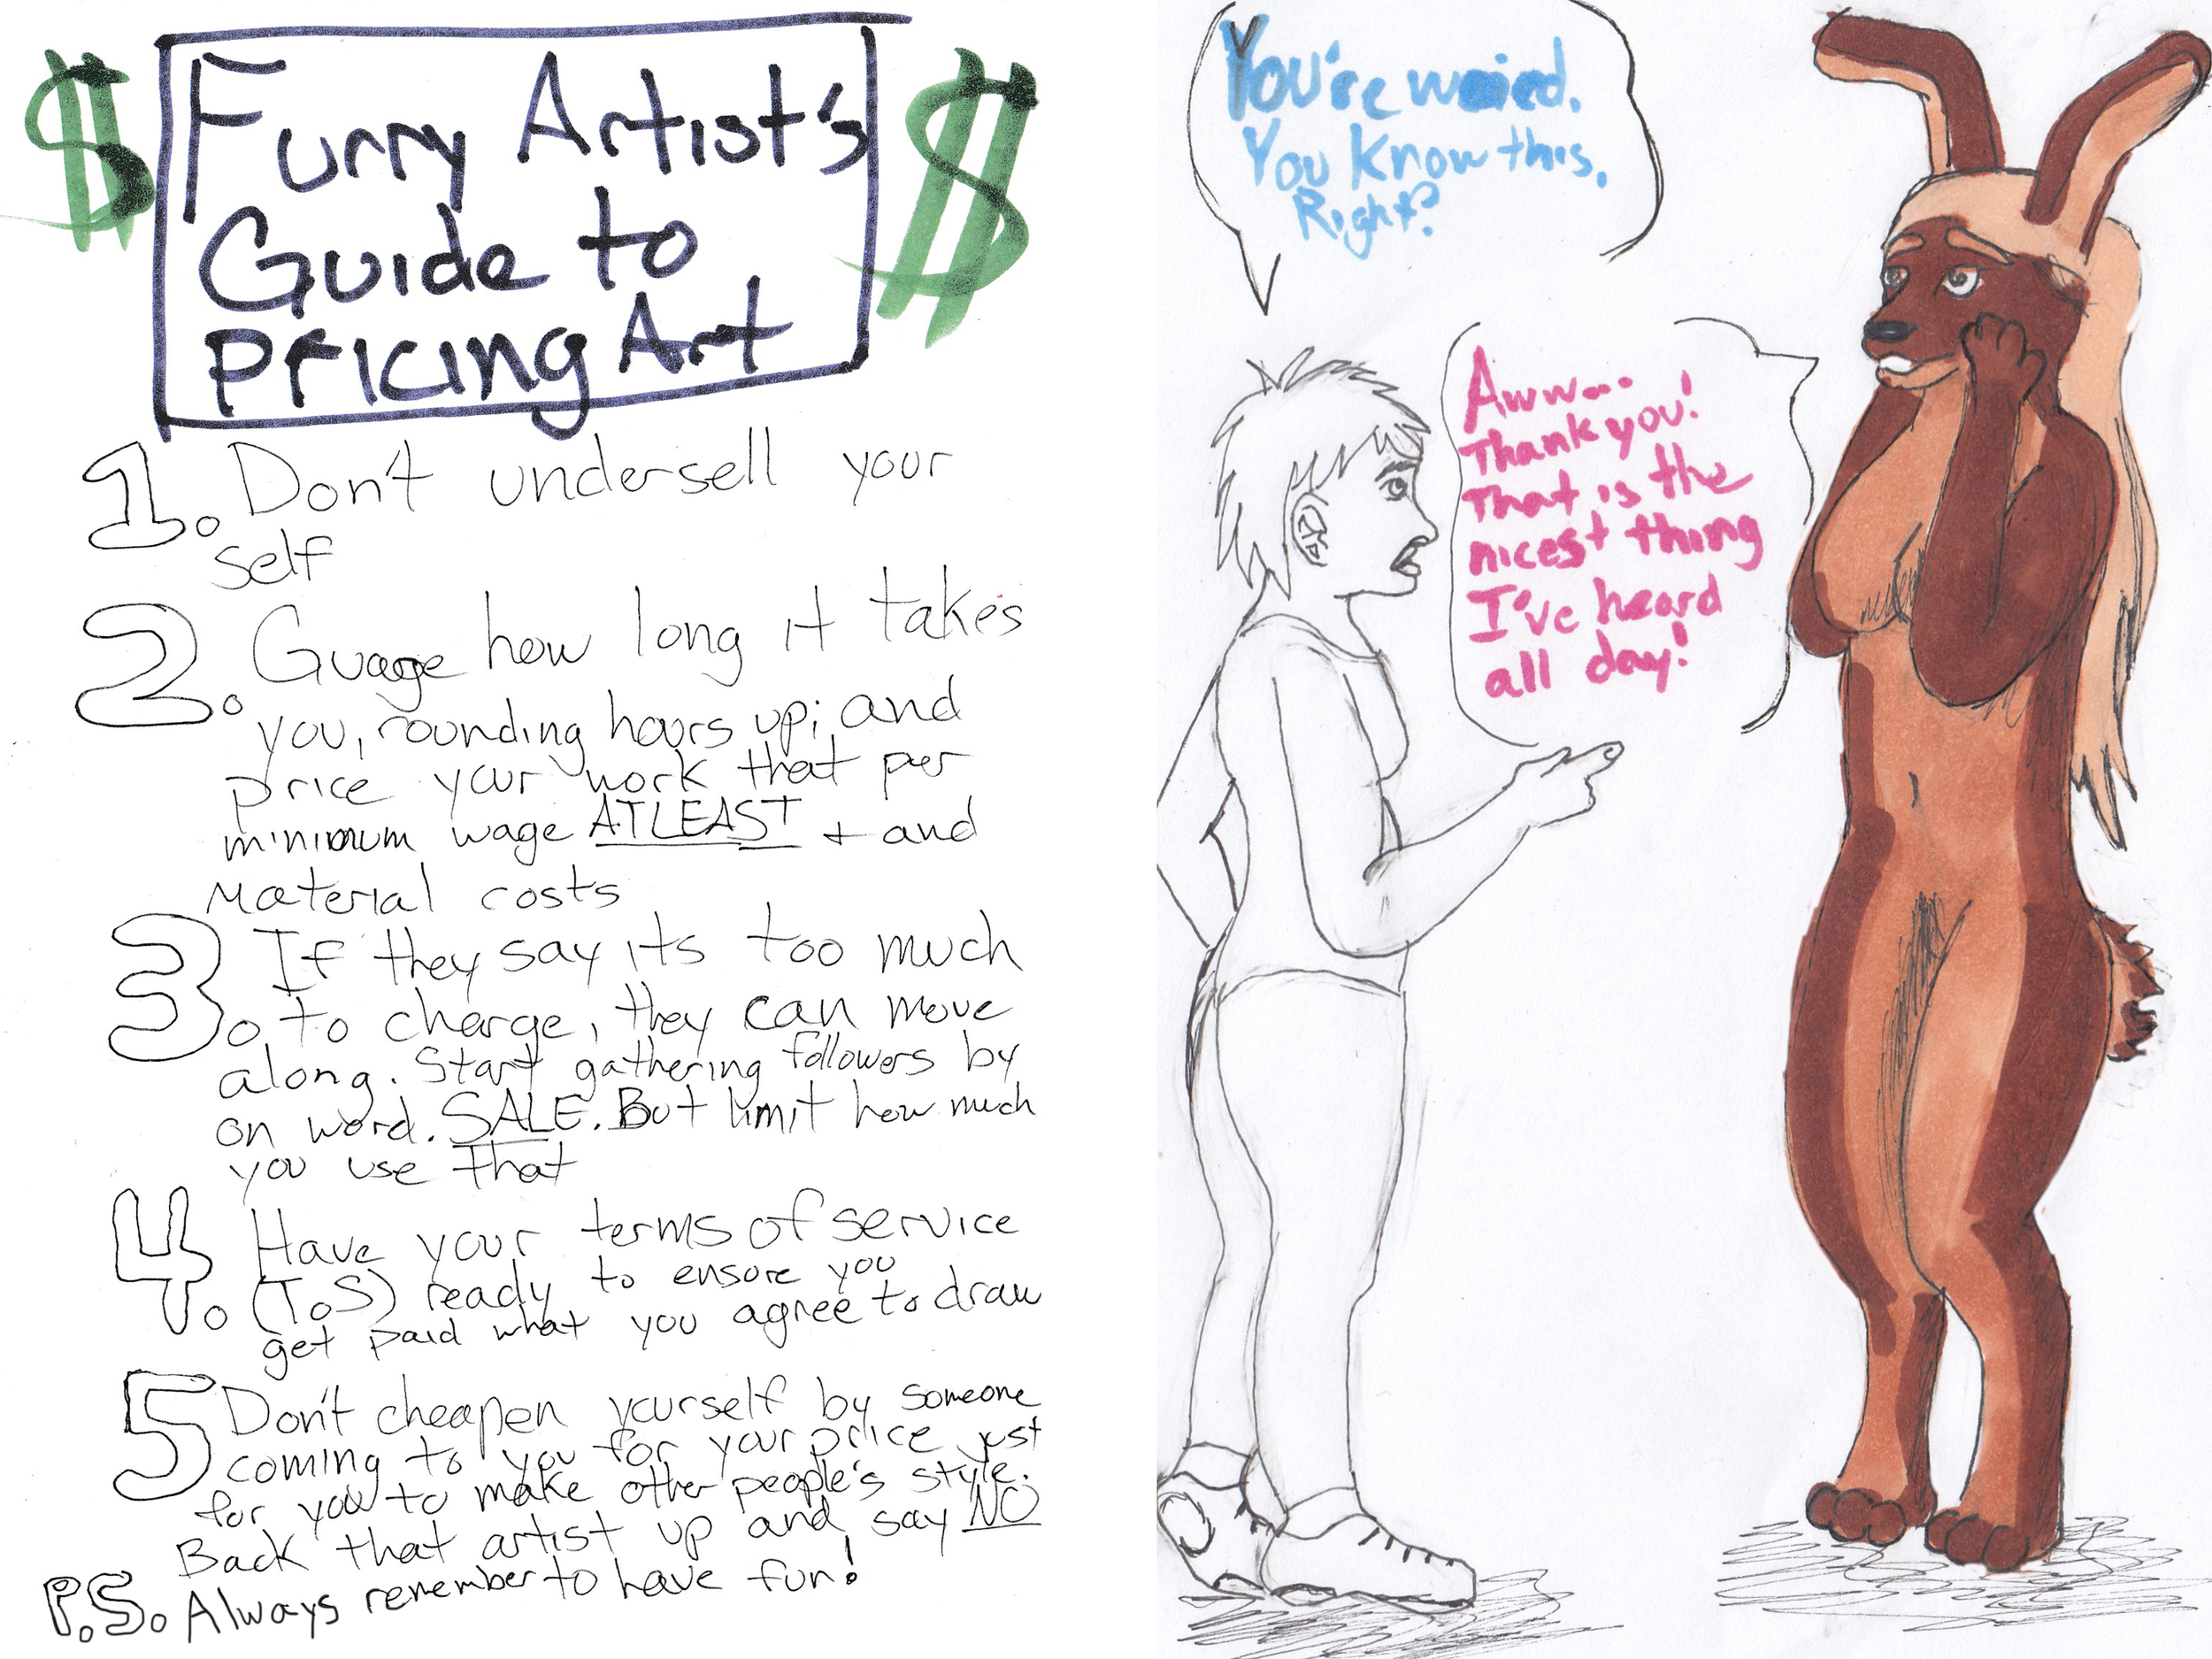 $ $
Furry Artist's
Guide to
Pricing Art
1. Don't undersell your
self
2. Guage how long it takes
you, rounding hours up; and
price your work that per
minimum wage ATLEAST + and
Material costs
3. If they say its too much
to charge, they can move
along. Start gathering followers by
on word. SALE. But limit how much
you use that
4. Have your terms of service
(ToS) ready to ensure you
get paid what you agree to draw
5 Don't cheapen yourself by someone
coming to you for your price just
for you to make other people's style.
Back that artist up and say NO
P.S. Always remember to have fun!
You're weird.
You Know this.
Right?
Aww...
Thank you!
That is the
nicest thing
I've heard
all day!